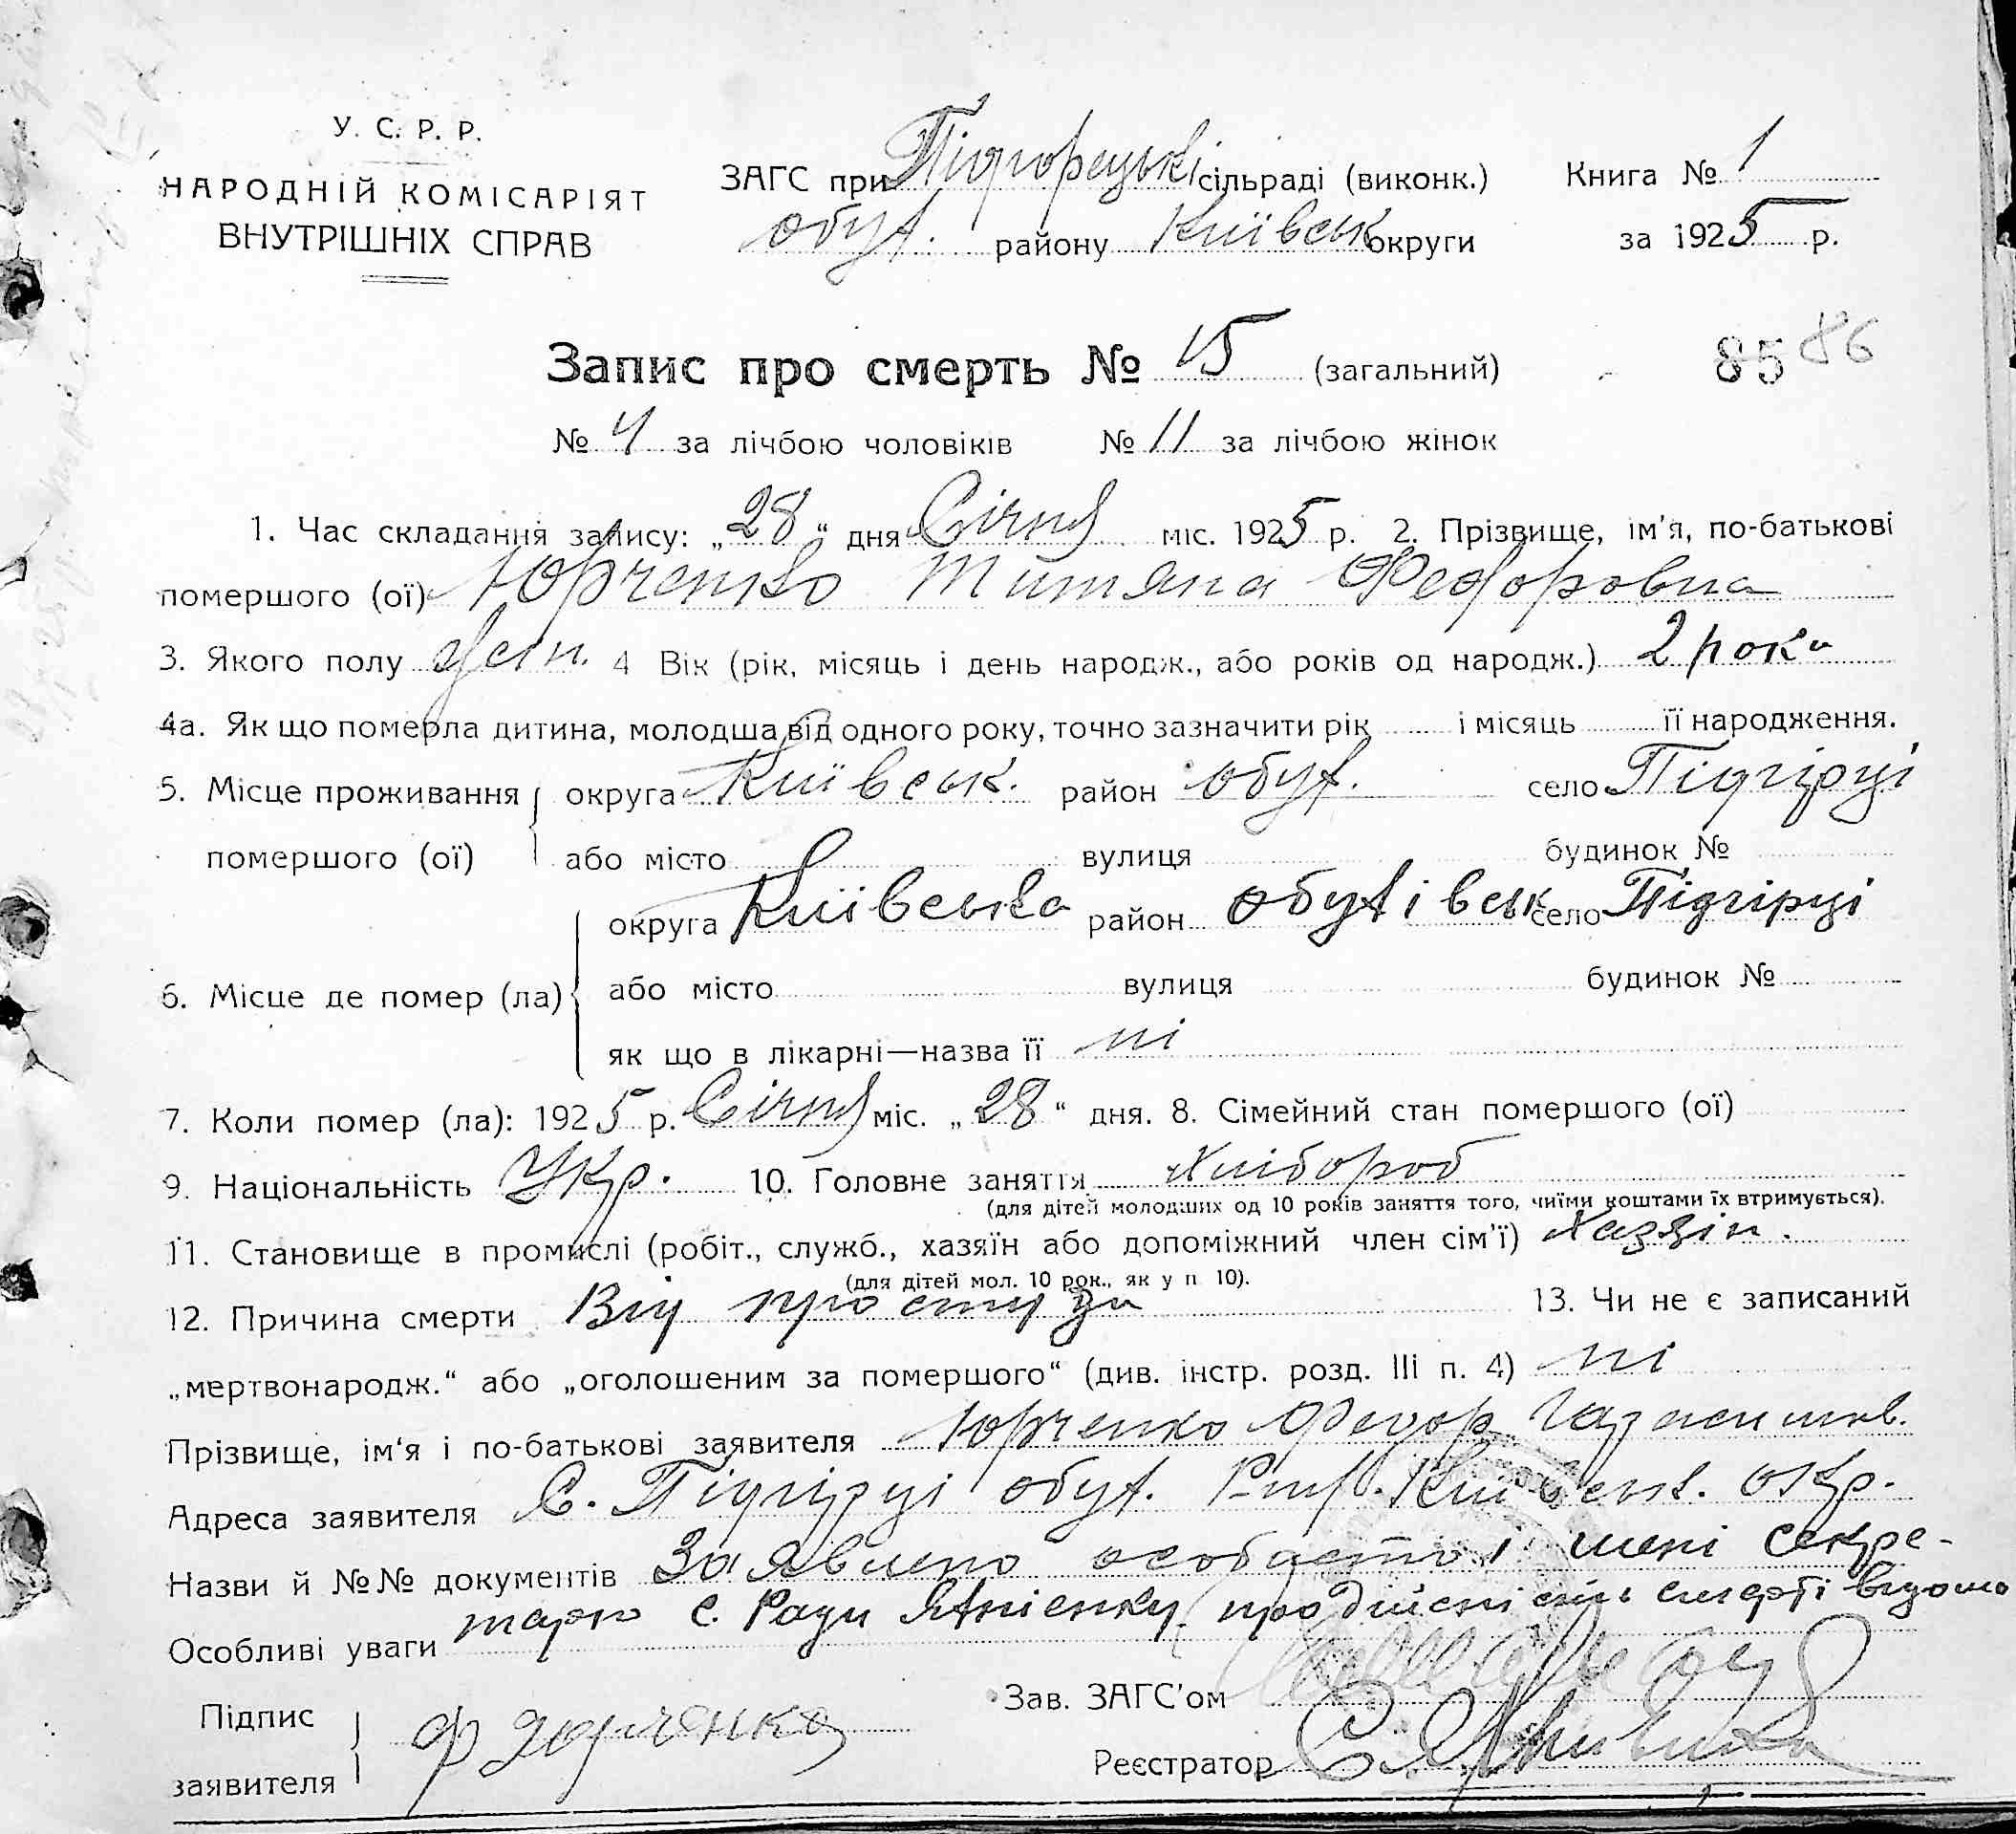 У. С. Р. Р.
НАРОДНІЙ КОМІСАРІЯТ
ВНУТРІШНІХ СПРАВ
ЗАГС при Підгорецькі сільраді (виконк.) Книга № 1
обух. району Київськ округи за 1925 р.
Запис про смерть № 15 (загальний) 85 86
№ 4 за лічбою чоловіків № 11 за лічбою жінок
1. Час складання запису: „28“ дня Січня міс. 1925 р. 2. Прізвище, ім'я, по-батькові
помершого (ої) Юрченко Титяна Федоровна
3. Якого полу жін. 4 Вік (рік, місяць і день народж., або років од народж.) 2 роки
4а. Як що померла дитина, молодша від одного року, точно зазначити рік і місяць її народження.
5. Місце проживання округа Київськ. район обух. село Підгірці
помершого (ої) або місто вулиця будинок №
округа Київська район обухівськ село Підгірці
6. Місце де помер (ла) або місто вулиця будинок №
як що в лікарні—назва її ні
7. Коли помер (ла): 1925 р. Січня міс. „28“ дня. 8. Сімейний стан помершого (ої)
9. Національність Укр. 10. Головне заняття Хлібороб
(для дітей молодших од 10 років заняття того, чиїми коштами їх втримується).
11. Становище в промислі (робіт., служб., хазяїн або допоміжний член сім'ї) Хазяін.
(для дітей мол. 10 рок., як у п 10).
12. Причина смерти Від простуди 13. Чи не є записаний
„мертвонародж.“ або „оголошеним за помершого“ (див. інстр. розд. III п. 4) ні
Прізвище, ім'я і по-батькові заявителя Юрченко Федор
Адреса заявителя С. Підгірці обух. Київськ. окр.
Назви й №№ документів Заявлено особисто і мені секре-
тарю С. Ради про дійсність смерті відомо
Особливі уваги
Зав. ЗАГС'ом
Підпис
заявителя Ф Юрченко
Реєстратор